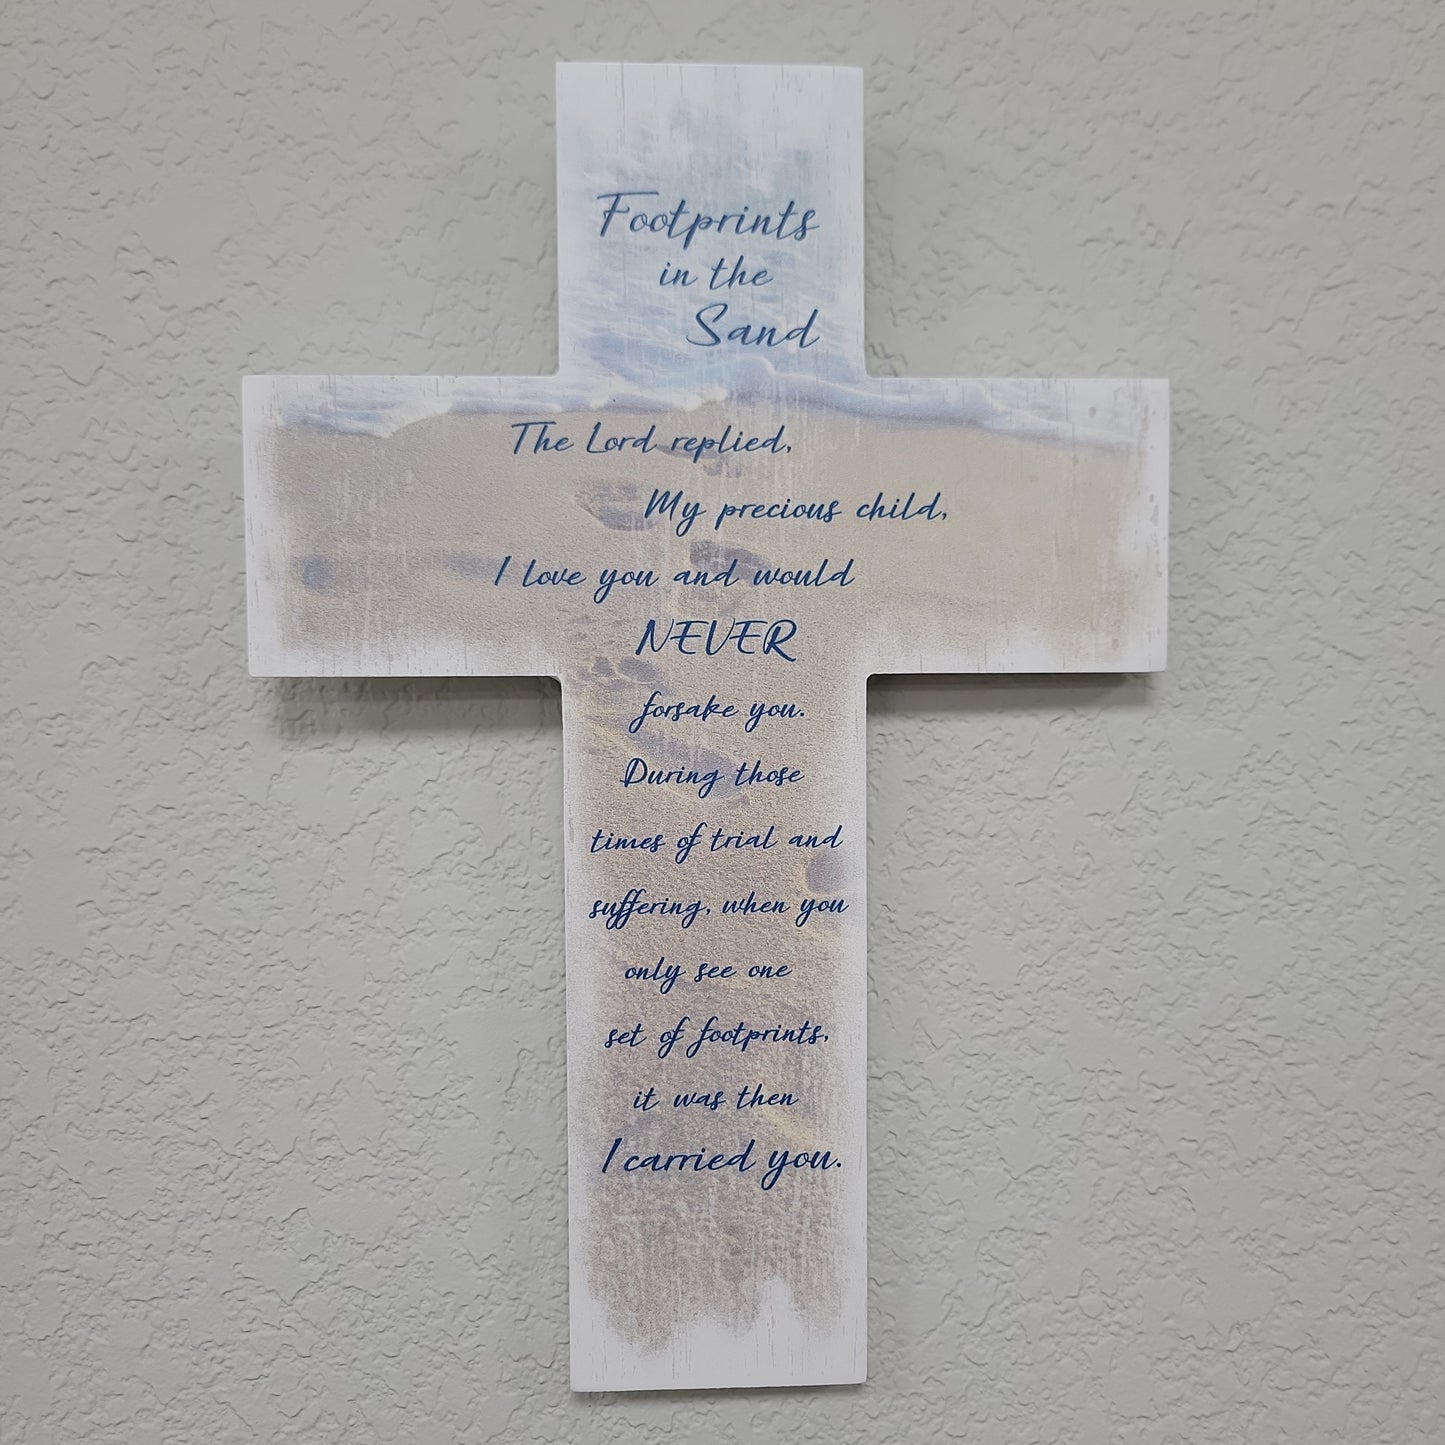 Footprints
in the
Sand
The Lord replied,
My precious child,
I love you and would
NEVER
forsake you.
During those
times of trial and
suffering, when you
only see one
set of footprints,
it was then
I carried you.